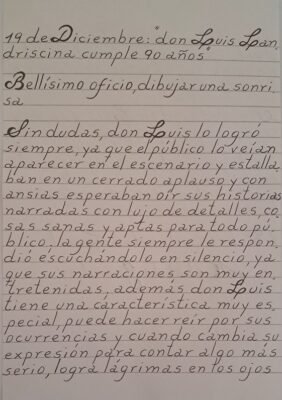 19 de Diciembre: "don Luis Lan,
driscina cumple 90 años"
Bellísimo oficio, dibujar una sonri,
sa
Sin dudas, don Luis lo logró
siempre, ya que el público lo veían
aparecer en el escenario y estalla,
ban en un cerrado aplauso y con
ansias esperaban oír sus historias
narradas con lujo de detalles, co,
sas sanas y aptas para todo pú,
blico, la gente siempre le respon,
dió escuchándolo en silencio, ya
que sus narraciones son muy en,
tretenidas, además don Luis
tiene una característica muy es,
pecial, puede hacer reír por sus
ocurrencias y cuando cambia su
expresión para contar algo más
serio, logra lágrimas en los ojos